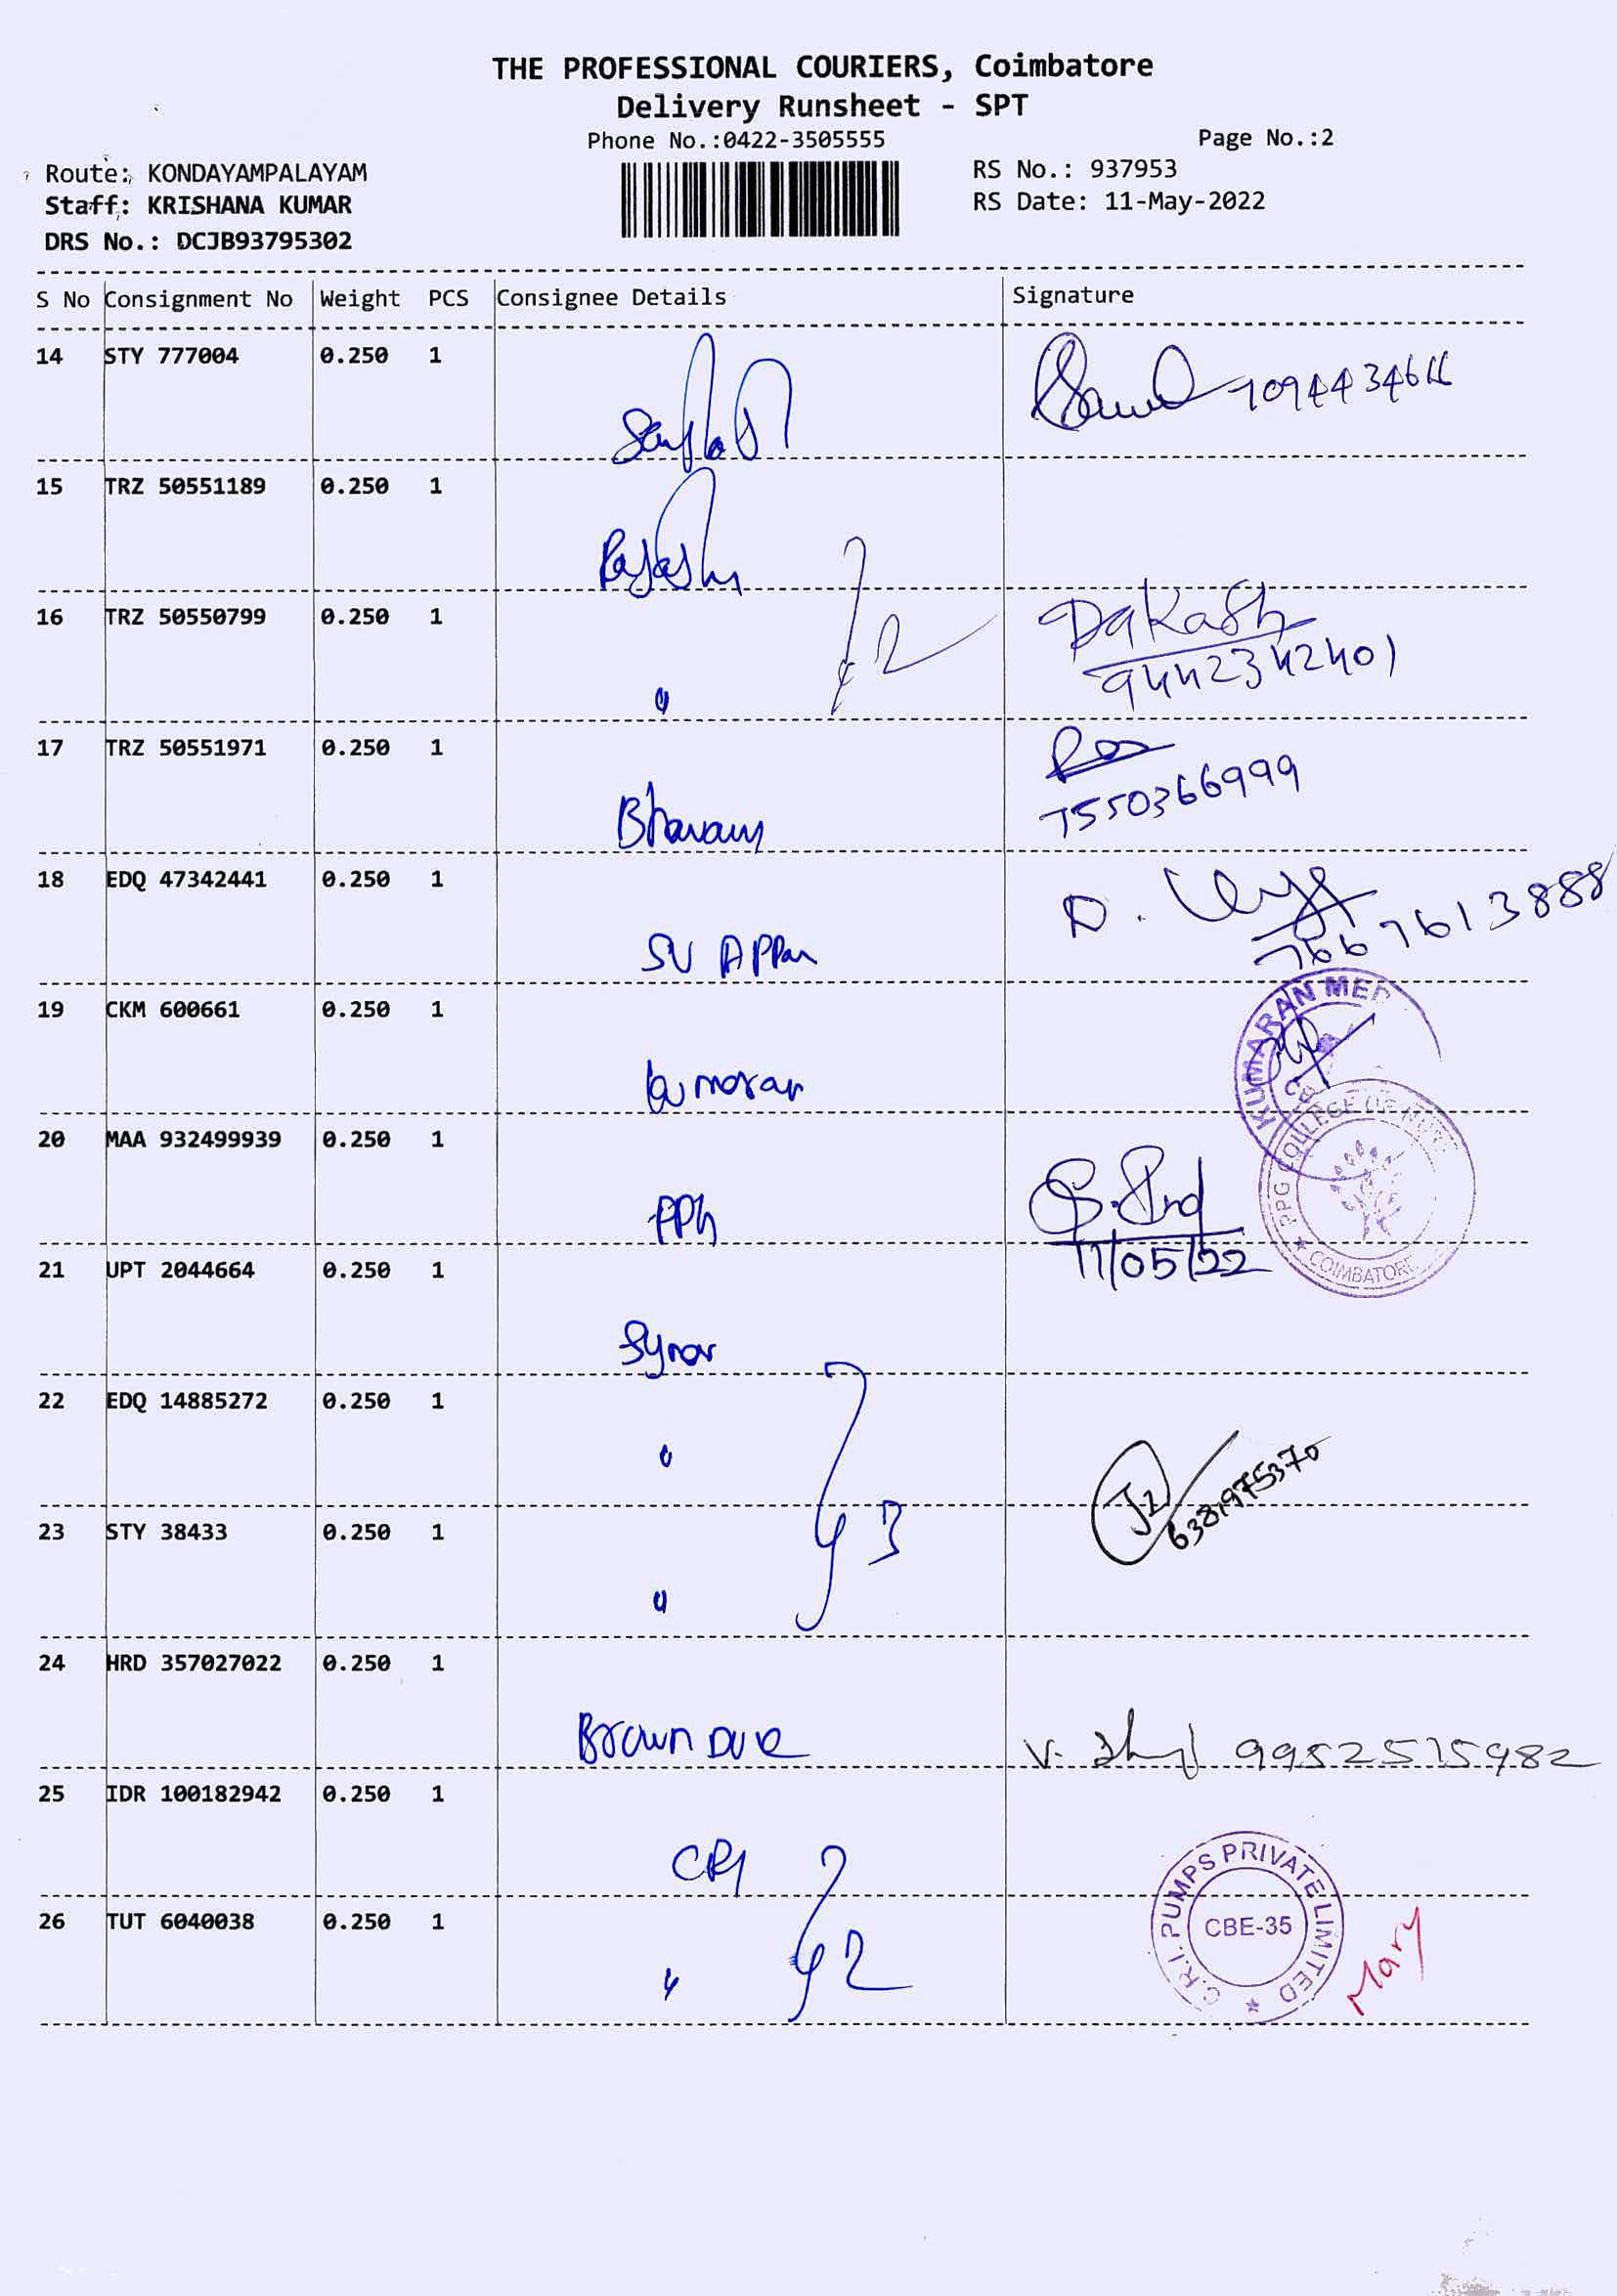 THE PROFESSIONAL COURIERS, Coimbatore
Delivery Runsheet - SPT
Phone No.:0422-3505555
Page No.:2
Route: KONDAYAMPALAYAM
RS No.: 937953
Staff: KRISHANA KUMAR
RS Date: 11-May-2022
DRS No.: DCJB93795302
S No Consignment No Weight PCS Consignee Details Signature
14 STY 777004 0.250 1
15 TRZ 50551189 0.250 1
16 TRZ 50550799 0.250 1
2
9442342401
17 TRZ 50551971 0.250 1
7550366999
18 EDQ 47342441 0.250 1
D.
SV
7667613888
19 CKM 600661 0.250 1
KUMARAN MED
Kumaran
20 MAA 932499939 0.250 1
PPG COLLEGE OF NURS
COIMBATORE
11/05/22
21 UPT 2044664 0.250 1
22 EDQ 14885272 0.250 1
6381975370
23 STY 38433 0.250 1
3
24 HRD 357027022 0.250 1
Brown
V.
9952515982
25 IDR 100182942 0.250 1
CRI
C.R.I. PUMPS PRIVATE LIMITED
CBE-35
26 TUT 6040038 0.250 1
2
Mary